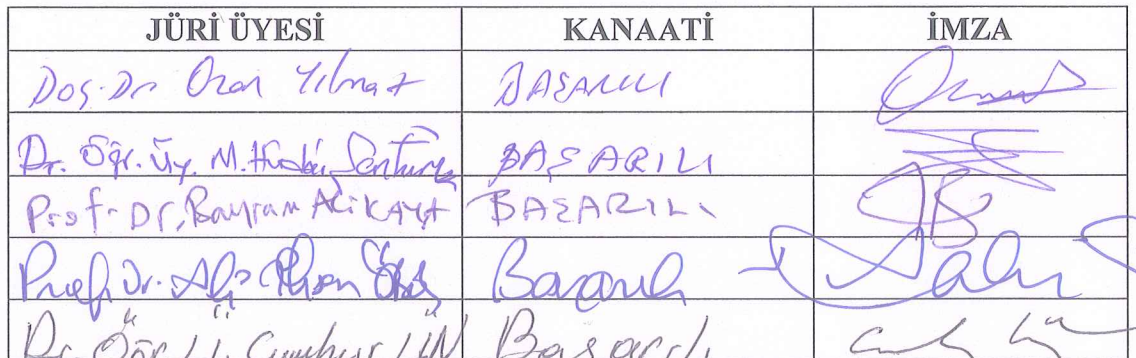 JÜRİ ÜYESİ KANAATİ İMZA
Doç. Dr. Ozan Yılmaz BAŞARILI
Dr. Öğr. Üy. M. BAŞARILI
Prof. Dr. Bayram AÇIKAYA BAŞARILI
Prof. Dr. Ali Başarılı
Dr. Öğr. Ü. Cumhur ÜN Başarılı